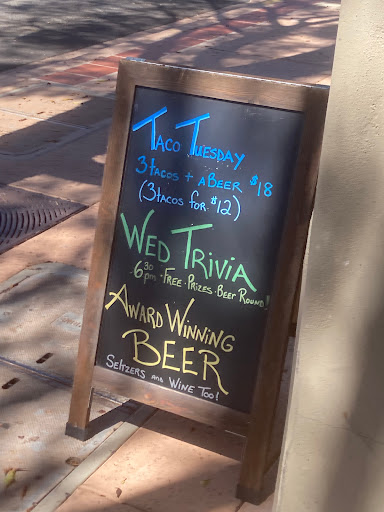 Taco Tuesday
3 tacos + a Beer $18
(3 tacos for $12)
Wed Trivia
6:30 pm · Free · Prizes · Beer Round!
Award Winning
Beer
Seltzers and Wine Too!